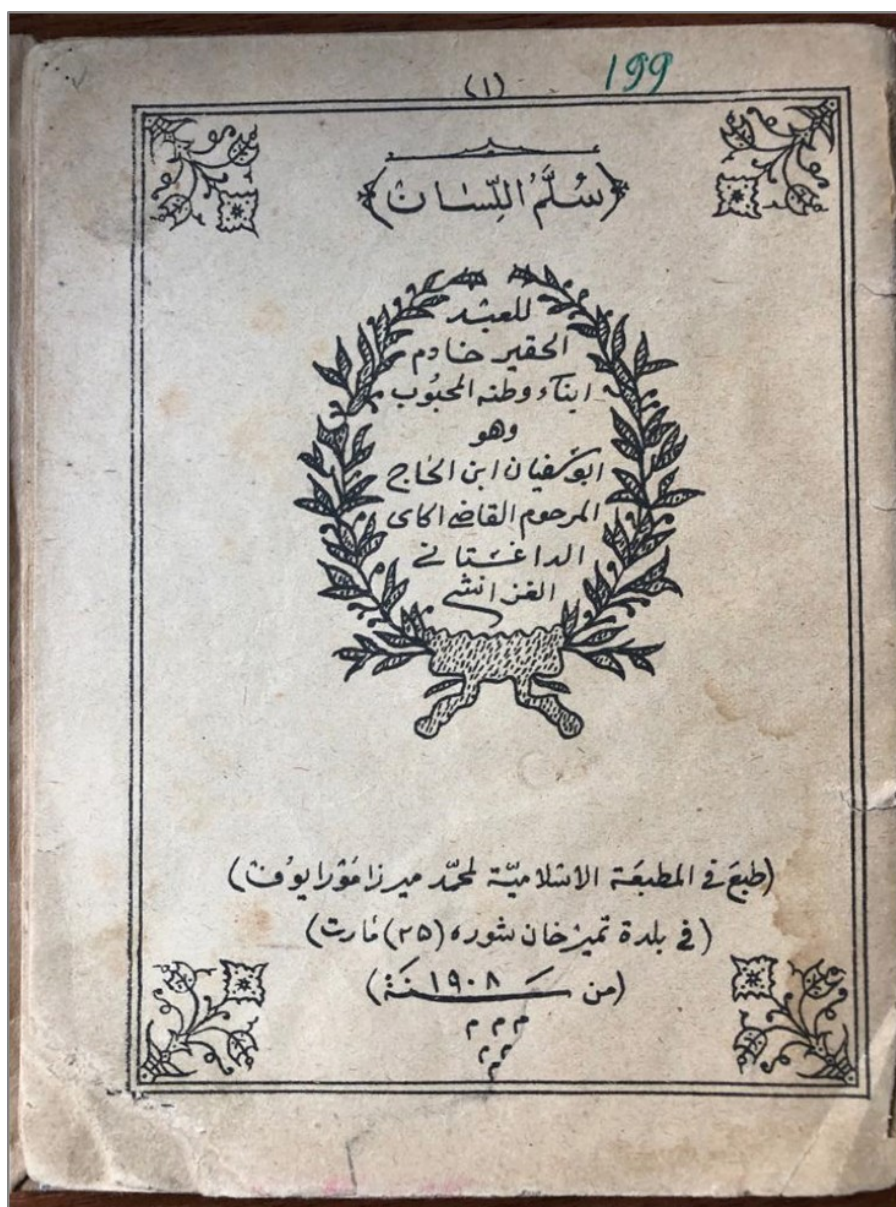 (١) 199
﴿سُلَّمُ اللِّسَان﴾
للعبد
الحقير خادم
ابناء وطنه المحبُوب
وهو
ابوسفيان ابن الحاج
المرحوم القاضى اكاى
الداغستانے
الغزانشى
(طبعَ فى المطبعَة الاسْلاميّة لمحمّد ميرزا مَوْرايوْف)
(فى بلدة تميرخان شوره (٢٥) مَارت)
(من سَنَة ١٩٠٨)
م م م
م م
م